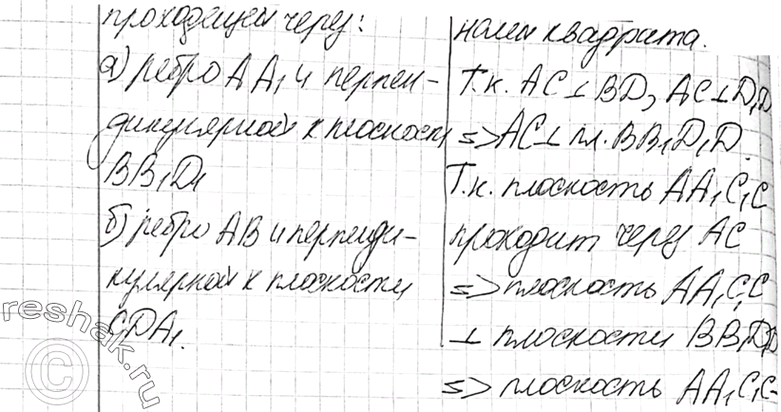 проходящем через:
а) ребро AA₁ и перпен-
дикулярной к плоскости
BB₁D₁
б) ребро AB и перпенди-
кулярной к плоскости
CDA₁.
налем квадрата.
Т.к. AC⊥BD, AC⊥D₁D
=> AC⊥ пл. BB₁D₁D.
Т.к. плоскость AA₁C₁C
проходит через AC
=> плоскость AA₁C₁C
⊥ плоскости BB₁D₁D
=> плоскость AA₁C₁C-
© reshak.ru